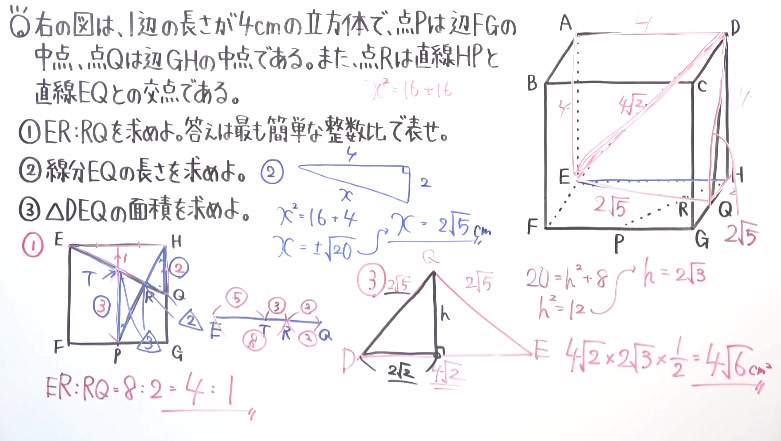 右の図は、1辺の長さが4cmの立方体で、点Pは辺FGの
中点、点Qは辺GHの中点である。また、点Rは直線HPと
直線EQとの交点である。
x²=16+16
①ER:RQを求めよ。答えは最も簡単な整数比で表せ。
②線分EQの長さを求めよ。
③△DEQの面積を求めよ。
②
4
2
x
x²=16+4
x=±√20
x=2√5cm
A
D
B
C
E
H
F
G
P
R
Q
4
4
4
4√2
2√5
2
2√5
①
E
H
T
R
Q
F
P
G
1
②
③
2
3
⑤
③
②
E
T
R
Q
⑧
②
ER:RQ=8:2=4:1
③
Q
2√5
2√5
h
D
E
2√2
4√2
20=h²+8
h²=12
h=2√3
4√2×2√3×1/2=4√6cm²